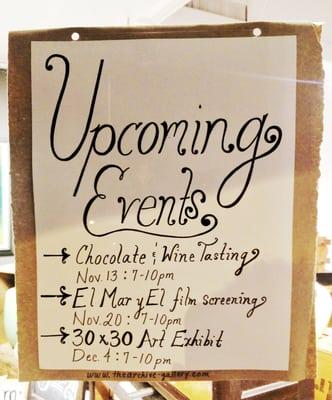 Upcoming
Events
Chocolate & Wine Tasting
Nov. 13 : 7-10pm
El Mar y El film screening
Nov. 20 : 7-10pm
30x30 Art Exhibit
Dec. 4 : 7-10pm
www.thearchive-gallery.com